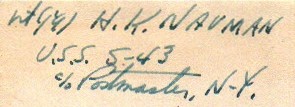 H. K. NAUMAN
U.S.S. S-43
c/o Postmaster, N-Y.